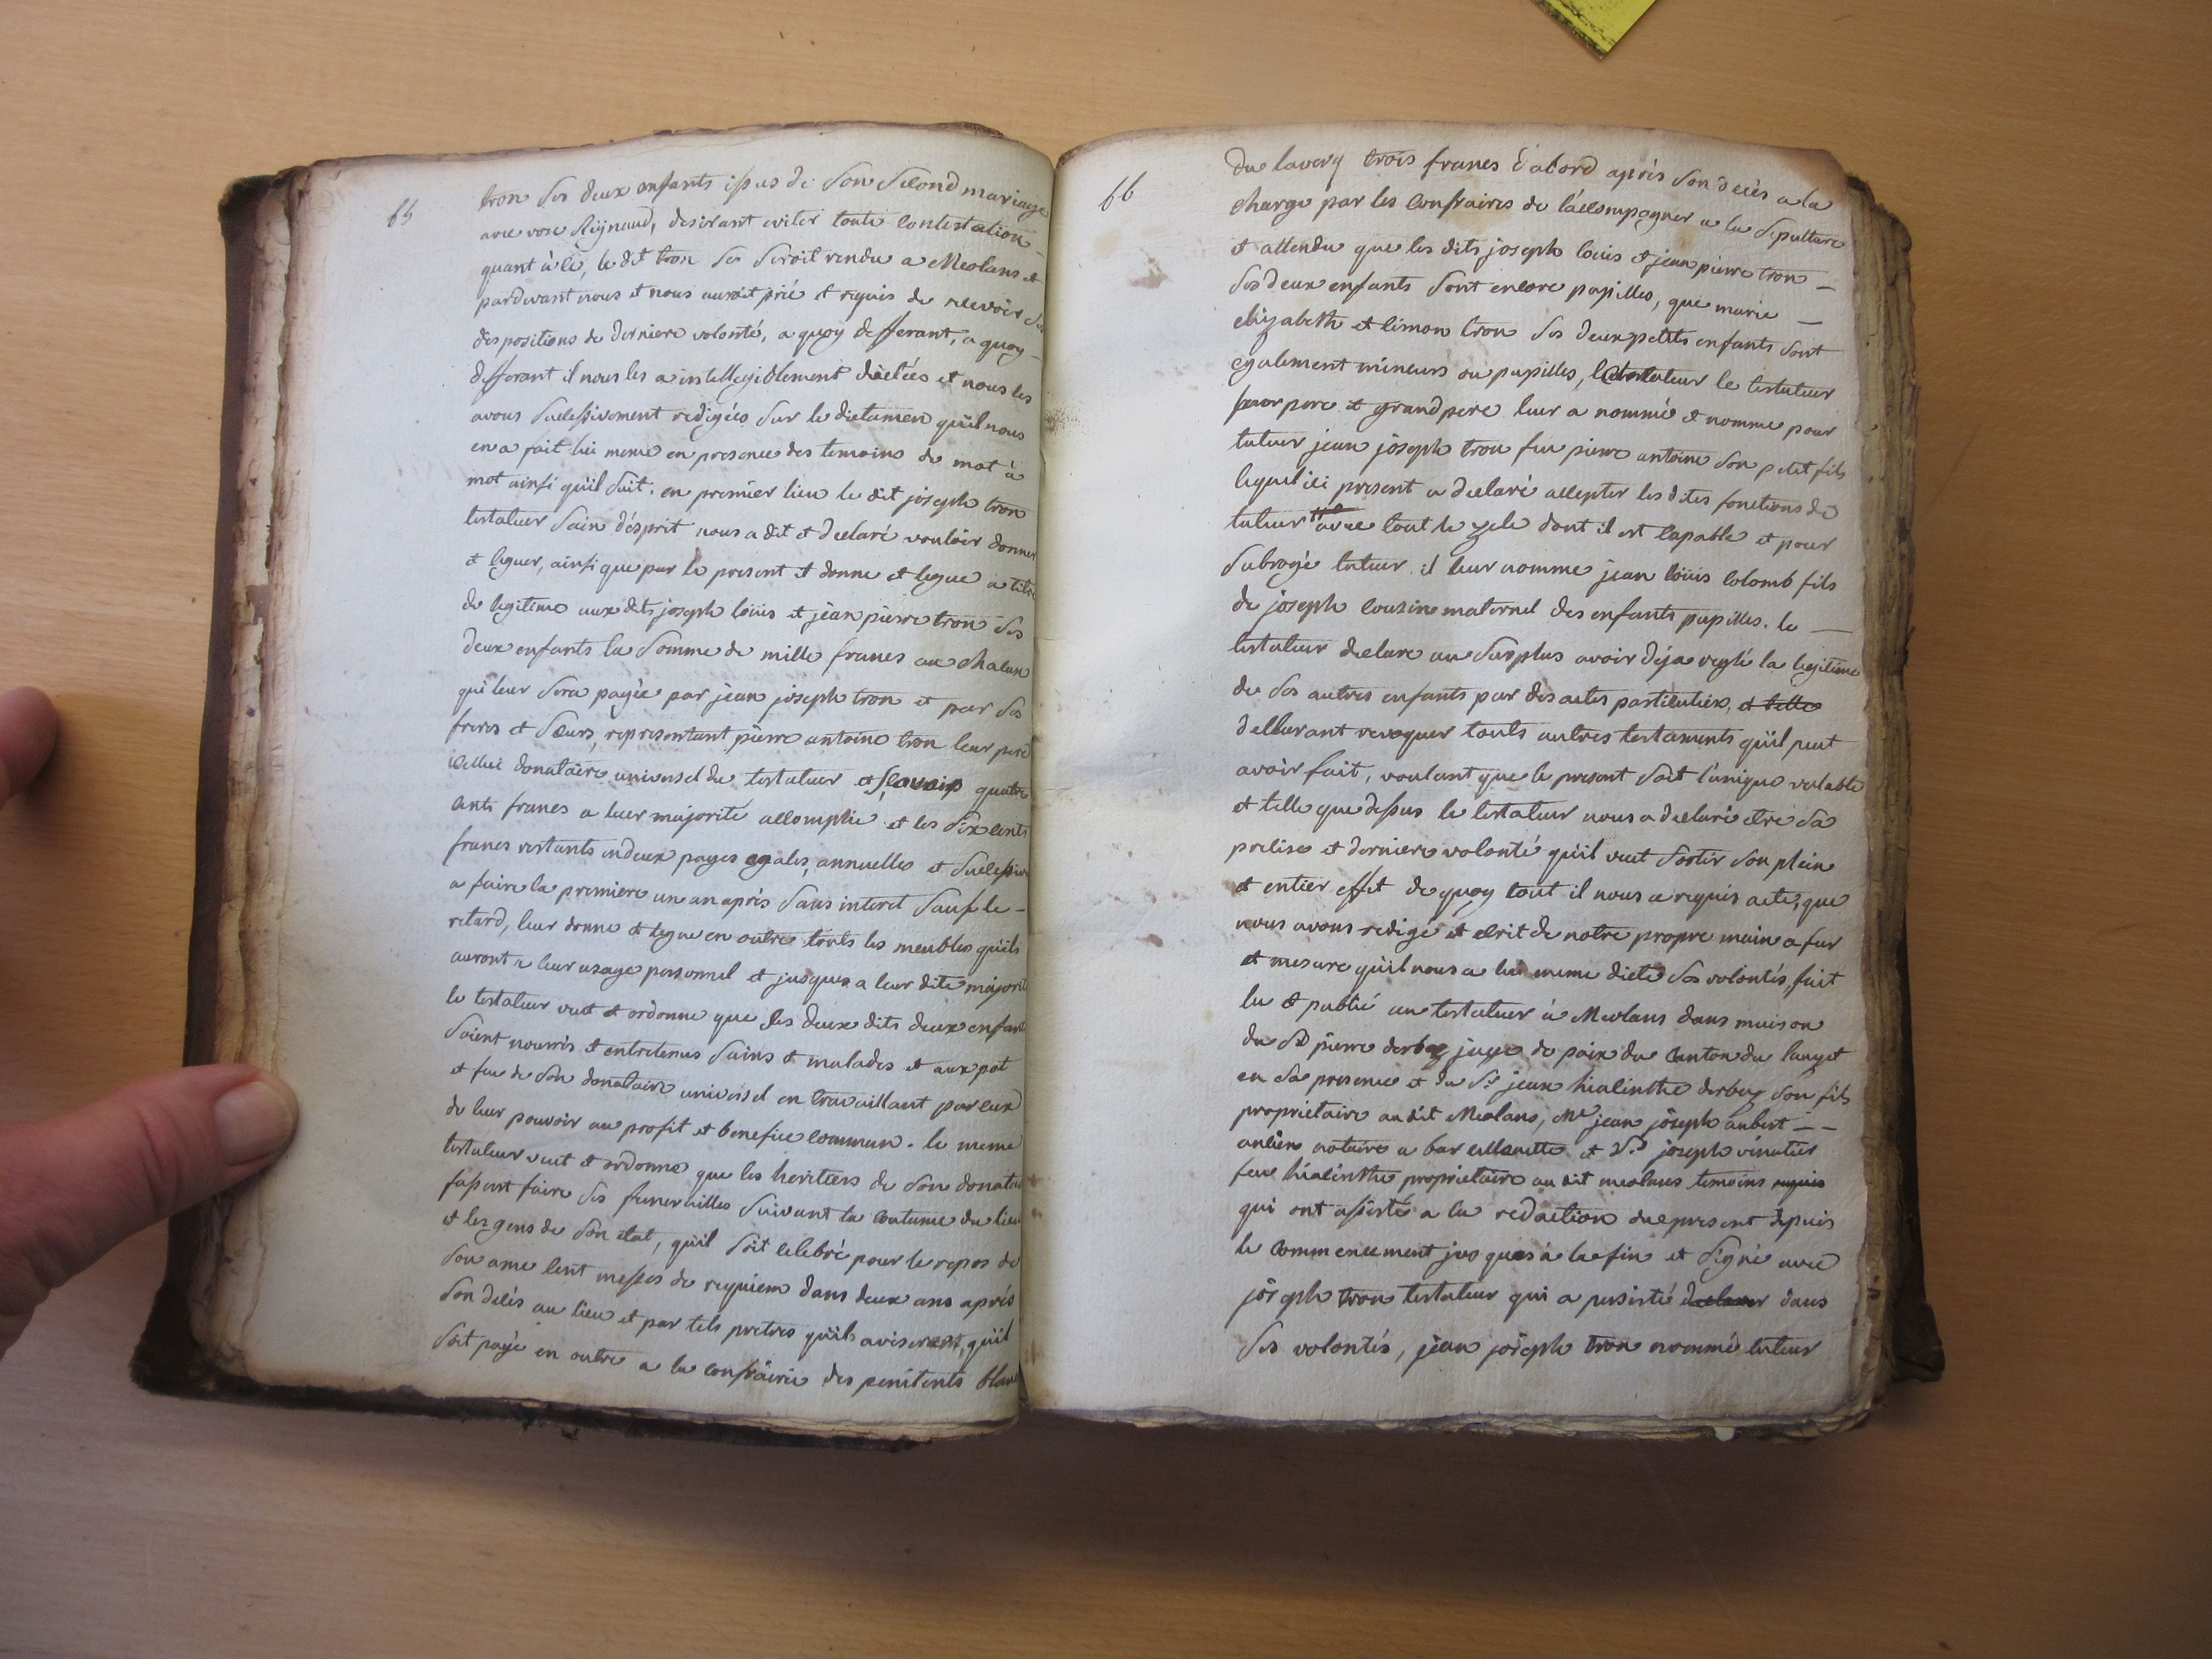 65
tron ses deux enfants issus de son second mariage
avec rose Reynaud, desirant eviter toute contestation
quant à ce, le dit tron se seroit rendu a Meolans et
pardevant nous et nous auroit prié et requis de recevoir ses
dispositions de derniere volonté, a quoy defferant, a quoy
defferant il nous les a intellegiblement dictées et nous les
avons successivement redigées sur le dictamen qu'il nous
en a fait lui meme en presence des temoins de mot à
mot ainsi qu'il suit. en premier lieu le dit joseph tron
testateur sain d'esprit nous a dit et declaré vouloir donner
et leguer, ainsi que par le present il donne et legue a titre
de legitime aux dits joseph loüis et jean pierre tron ses
deux enfants la somme de mille francs au chacun
qui leur sera payée par jean joseph tron et par ses
freres et sœurs, representant pierre antoine tron leur pere
icellui donataire universel du testateur et sçavoir quatre
cents francs a leur majorité accomplie et les six cents
francs restants en deux payes egales, annuelles et successives
a faire la premiere un an après sans interet sauf le
retard, leur donne et legue en outre touts les meubles qu'ils
auront a leur usage personnel et jusques a leur dite majorité
le testateur veut et ordonne que les deux dits deux enfants
soient nourris et entretenus sains et malades et aux pot
et feu de son donataire universel en travaillant par eux
de leur pouvoir au profit et benefice commun. le meme
testateur veut et ordonne que les heritiers de son donataire
fassent faire ses funerailles suivant la coutume du lieu
et les gens de son etat, qu'il soit celebré pour le repos de
son ame cent messes de requiem dans deux ans après
son décès au lieu et par tels pretres qu'ils aviseront, qu'il
soit payé en outre a la confrairie des penitents blancs
66
du laverq trois francs d'abord après son decès a la
charge par les confraires de l'accompagner a la sepulture
et attendu que les dits joseph loüis et jean pierre tron
ses deux enfants sont encore pupilles, que marie
elizabeth et simon tron ses deux petits enfants sont
egalement mineurs ou pupilles, le testateur le testateur
pere et grand pere leur a nommé et nomme pour
tuteur jean joseph tron feu pierre antoine son petit fils
lequel ici present a declaré accepter les dites fonctions de
tuteur avec tout le zele dont il est capable et pour
subrogé tuteur il leur nomme jean loüis colomb fils
de joseph cousin maternel des enfants pupilles. le
testateur declare au surplus avoir déja reglé la legitime
de ses autres enfants par des actes particuliers, et telle
declarant revoquer touts autres testaments qu'il peut
avoir fait, voulant que le present soit l'unique valable
et telle que dessus le testateur nous a declaré etre sa
precise et derniere volonté qu'il veut sortir son plein
et entier effet de quoy tout il nous a requis acte, que
nous avons redigé et ecrit de notre propre main a fur
et mesure qu'il nous a lui meme dicté ses volontés, fait
lu et publié au testateur à Meolans dans maison
du Sr pierre derbez juge de paix du canton du lauzet
en sa presence et du Sr jean hiacinthe derbez son fils
proprietaire au dit Meolans, Me jean joseph aubert
ancien notaire a barcellonette et Sr joseph vinatier
feu hiacinthe proprietaire au dit meolans temoins requis
qui ont assisté a la redaction du present depuis
le commencement jusques à la fin et signé avec
joseph tron testateur qui a persisté declarer dans
ses volontés, jean joseph tron nommé tuteur